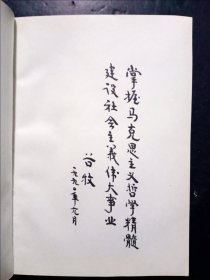 掌握马克思主义哲学精髓
建设社会主義伟大事业
谷牧
一九九〇年九月